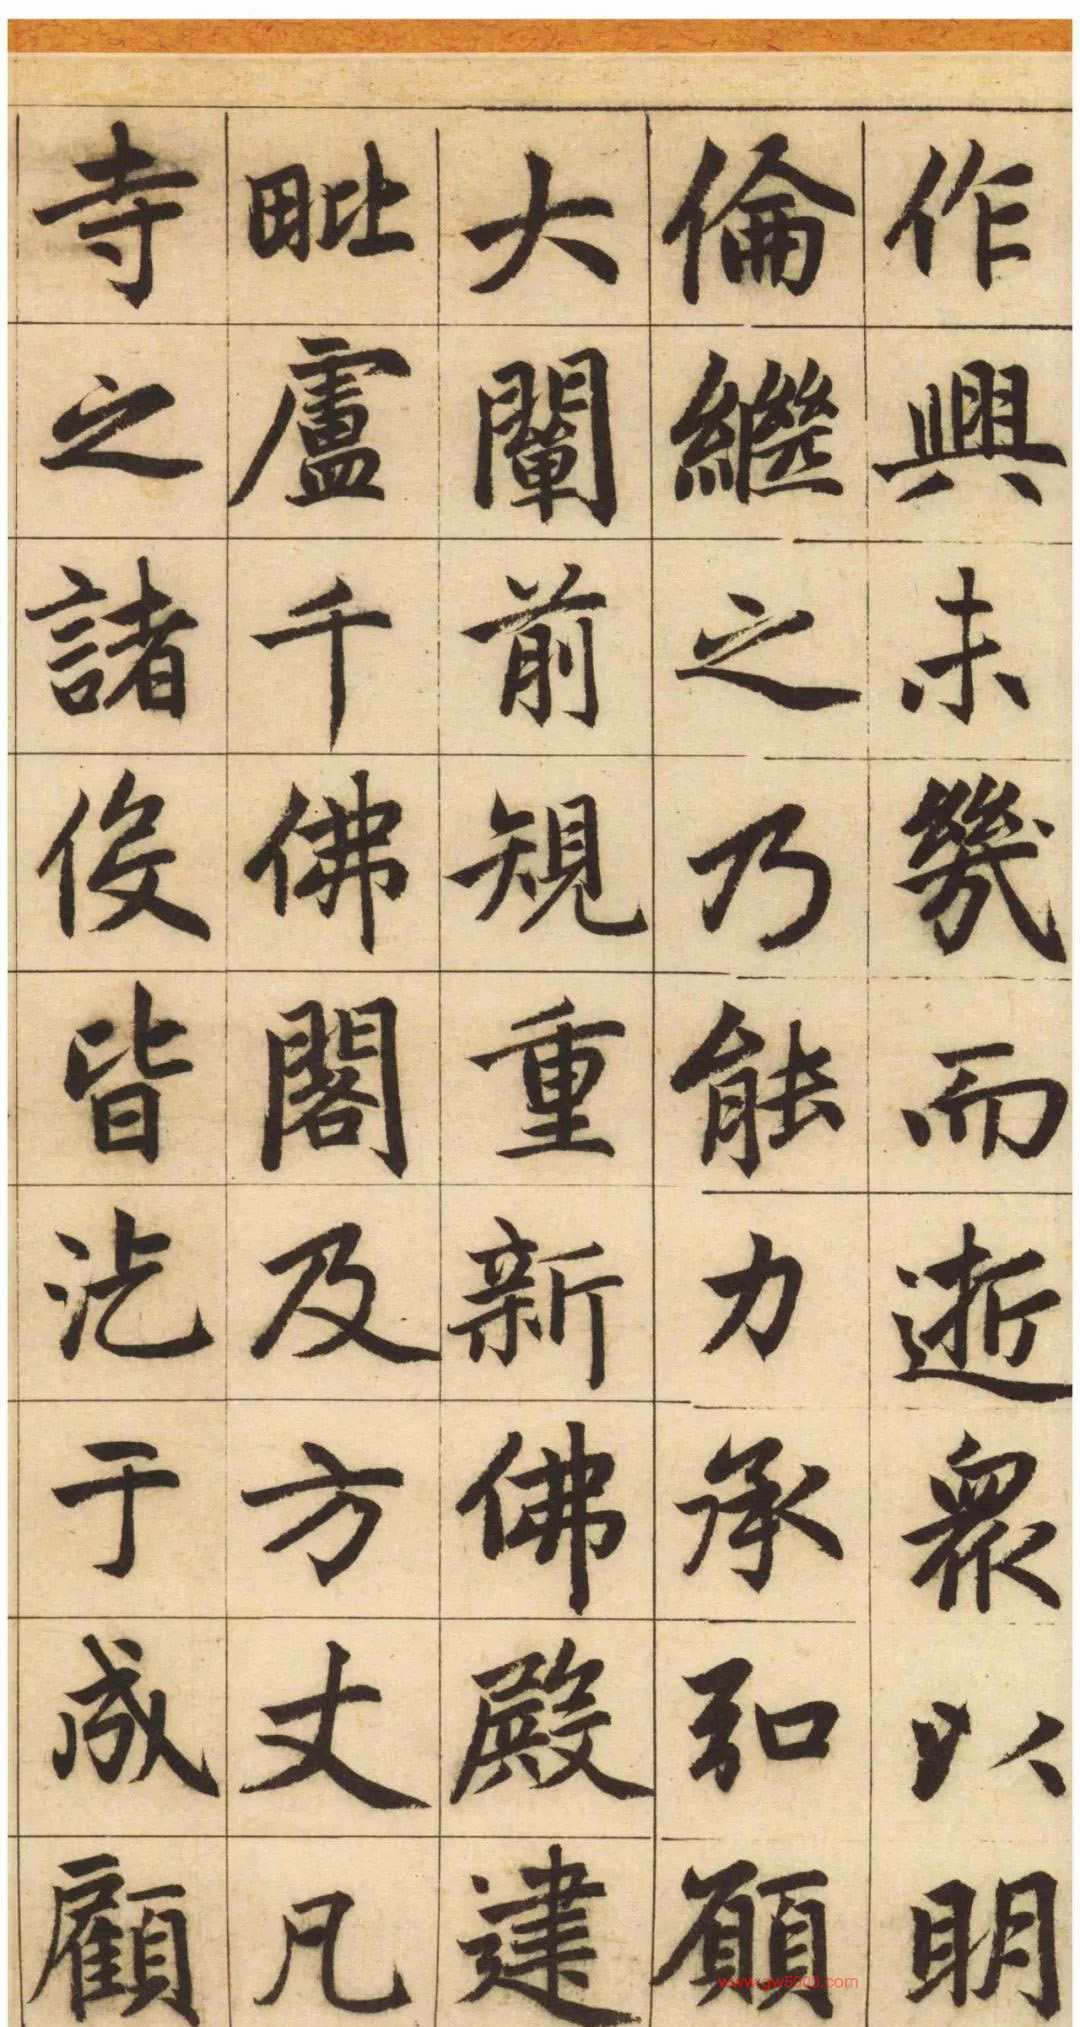 作興未幾而逝眾以明
倫繼之乃能力承弘願
大闡前規重新佛殿建
毗盧千佛閣及方丈凡
寺之諸役皆汔于成顧
www.gw5000.com